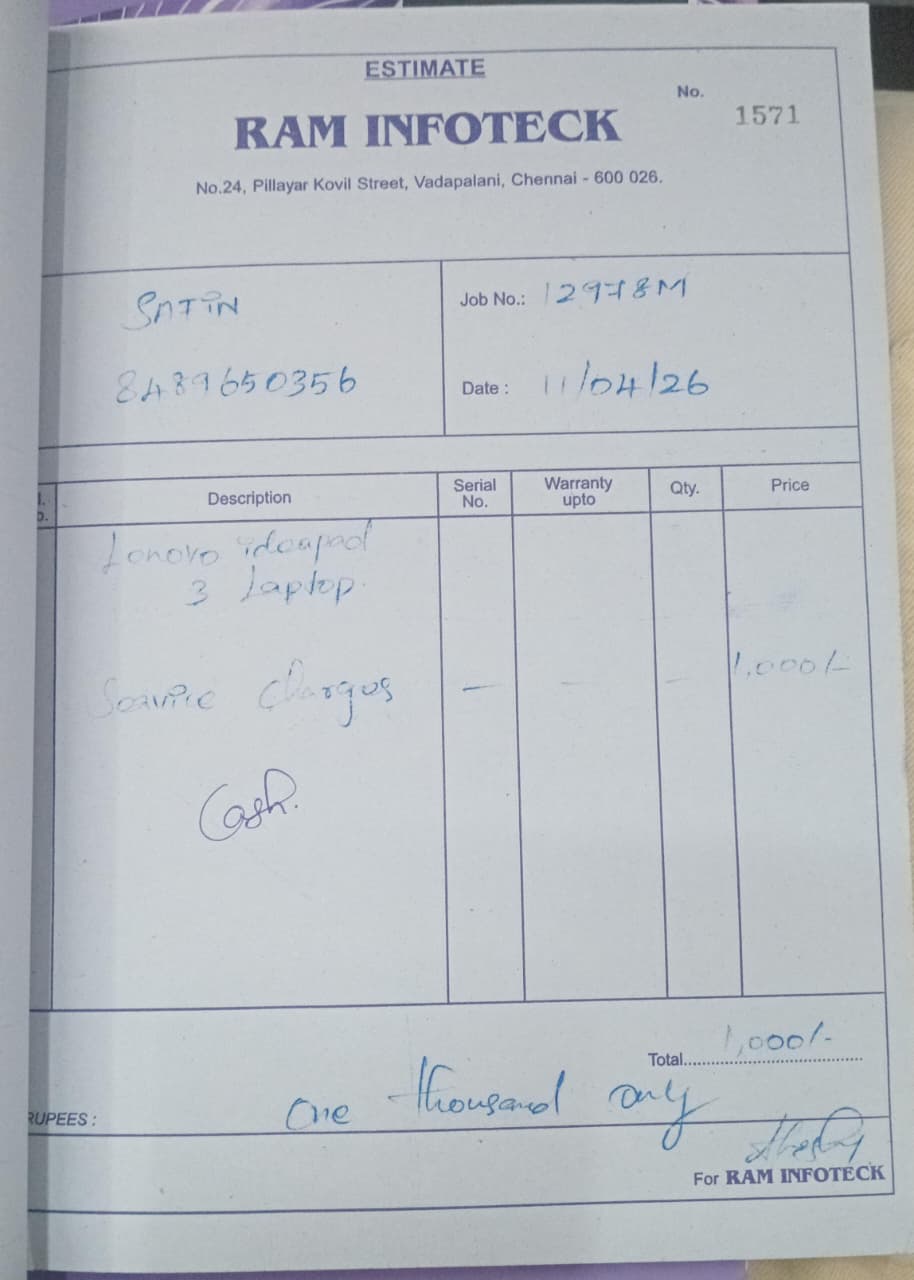 ESTIMATE
No.
1571
RAM INFOTECK
No.24, Pillayar Kovil Street, Vadapalani, Chennai - 600 026.
SATIN
8489650356
Job No.: 12978M
Date : 11/04/26
Description
Serial No.
Warranty upto
Qty.
Price
Lenovo ideapad
3 Laptop.
Service Charges - - - 1,000/-
Cash.
Total 1,000/-
RUPEES : One thousand only
For RAM INFOTECK